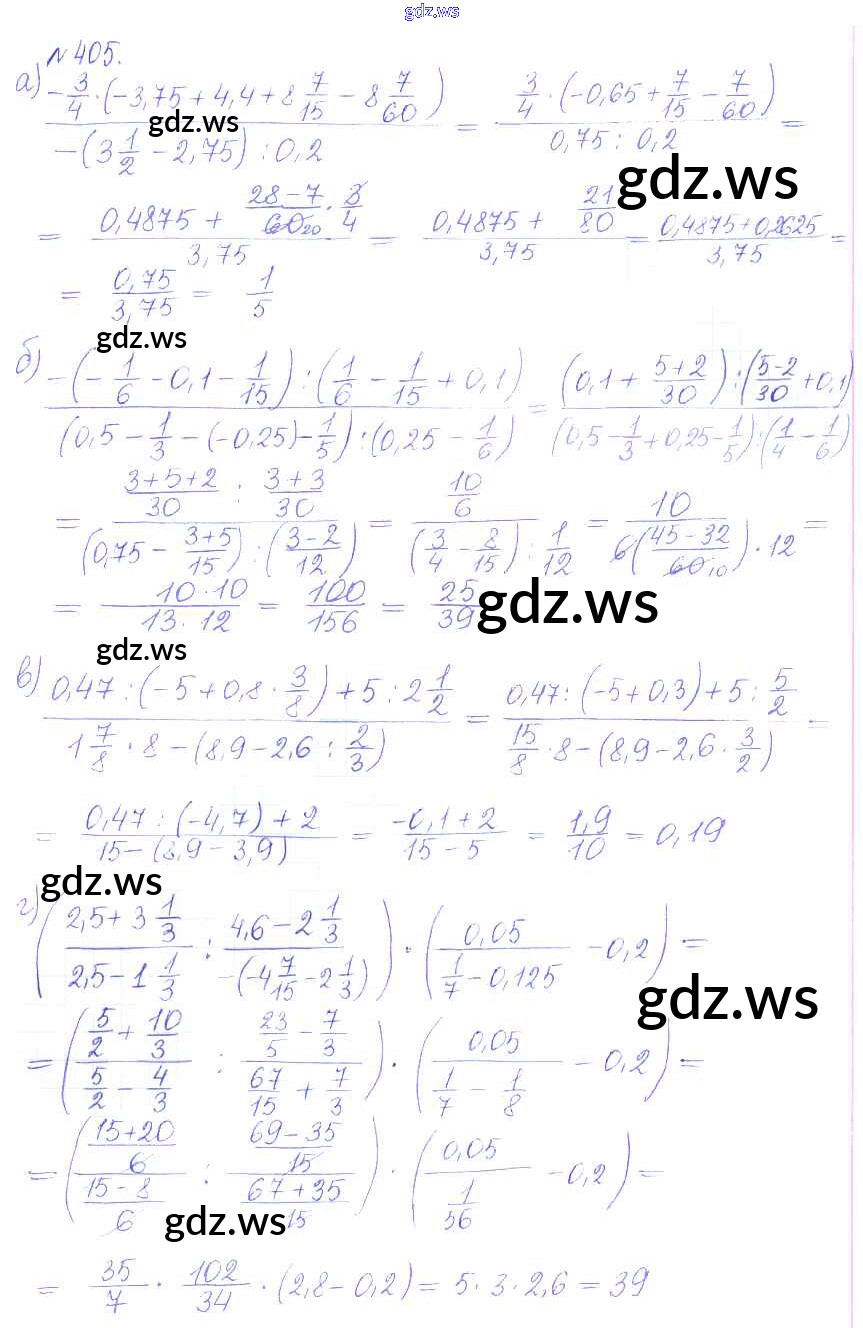 gdz.ws
№405.
а) -3/4 · (-3,75 + 4,4 + 8 7/15 - 8 7/60) / -(3 1/2 - 2,75) : 0,2 = 3/4 · (-0,65 + 7/15 - 7/60) / 0,75 : 0,2 =
gdz.ws
gdz.ws
= 0,4875 + (28-7)/60 20 · 3/4 / 3,75 = 0,4875 + 21/80 / 3,75 = 0,4875+0,2625 / 3,75 =
= 0,75/3,75 = 1/5
gdz.ws
б) -(-1/6 - 0,1 - 1/15) : (1/6 - 1/15 + 0,1) / (0,5 - 1/3 - (-0,25) - 1/5) : (0,25 - 1/6) = (0,1 + (5+2)/30) : ((5-2)/30 + 0,1) / (0,5 - 1/3 + 0,25 - 1/5) : (1/4 - 1/6)
= (3+5+2)/30 : (3+3)/30 / (0,75 - (3+5)/15) : ((3-2)/12) = 10/6 / (3/4 - 8/15) : 1/12 = 10 / 6((45-32)/60 10) · 12 =
= 10·10 / 13·12 = 100/156 = 25/39
gdz.ws
gdz.ws
в) 0,47 : (-5 + 0,8 · 3/8) + 5 : 2 1/2 / 1 7/8 · 8 - (8,9 - 2,6 : 2/3) = 0,47 : (-5 + 0,3) + 5 : 5/2 / 15/8 · 8 - (8,9 - 2,6 · 3/2) =
= 0,47 : (-4,7) + 2 / 15 - (8,9 - 3,9) = -0,1 + 2 / 15 - 5 = 1,9/10 = 0,19
gdz.ws
г) (2,5 + 3 1/3 / 2,5 - 1 1/3 : 4,6 - 2 1/3 / -(-4 7/15 - 2 1/3)) · (0,05 / 1/7 - 0,125 - 0,2) =
gdz.ws
= (5/2 + 10/3 / 5/2 - 4/3 : 23/5 - 7/3 / 67/15 + 7/3) · (0,05 / 1/7 - 1/8 - 0,2) =
= ((15+20)/6 / (15-8)/6 : (69-35)/15 / (67+35)/15) · (0,05 / 1/56 - 0,2) =
gdz.ws
= 35/7 · 102/34 · (2,8 - 0,2) = 5 · 3 · 2,6 = 39